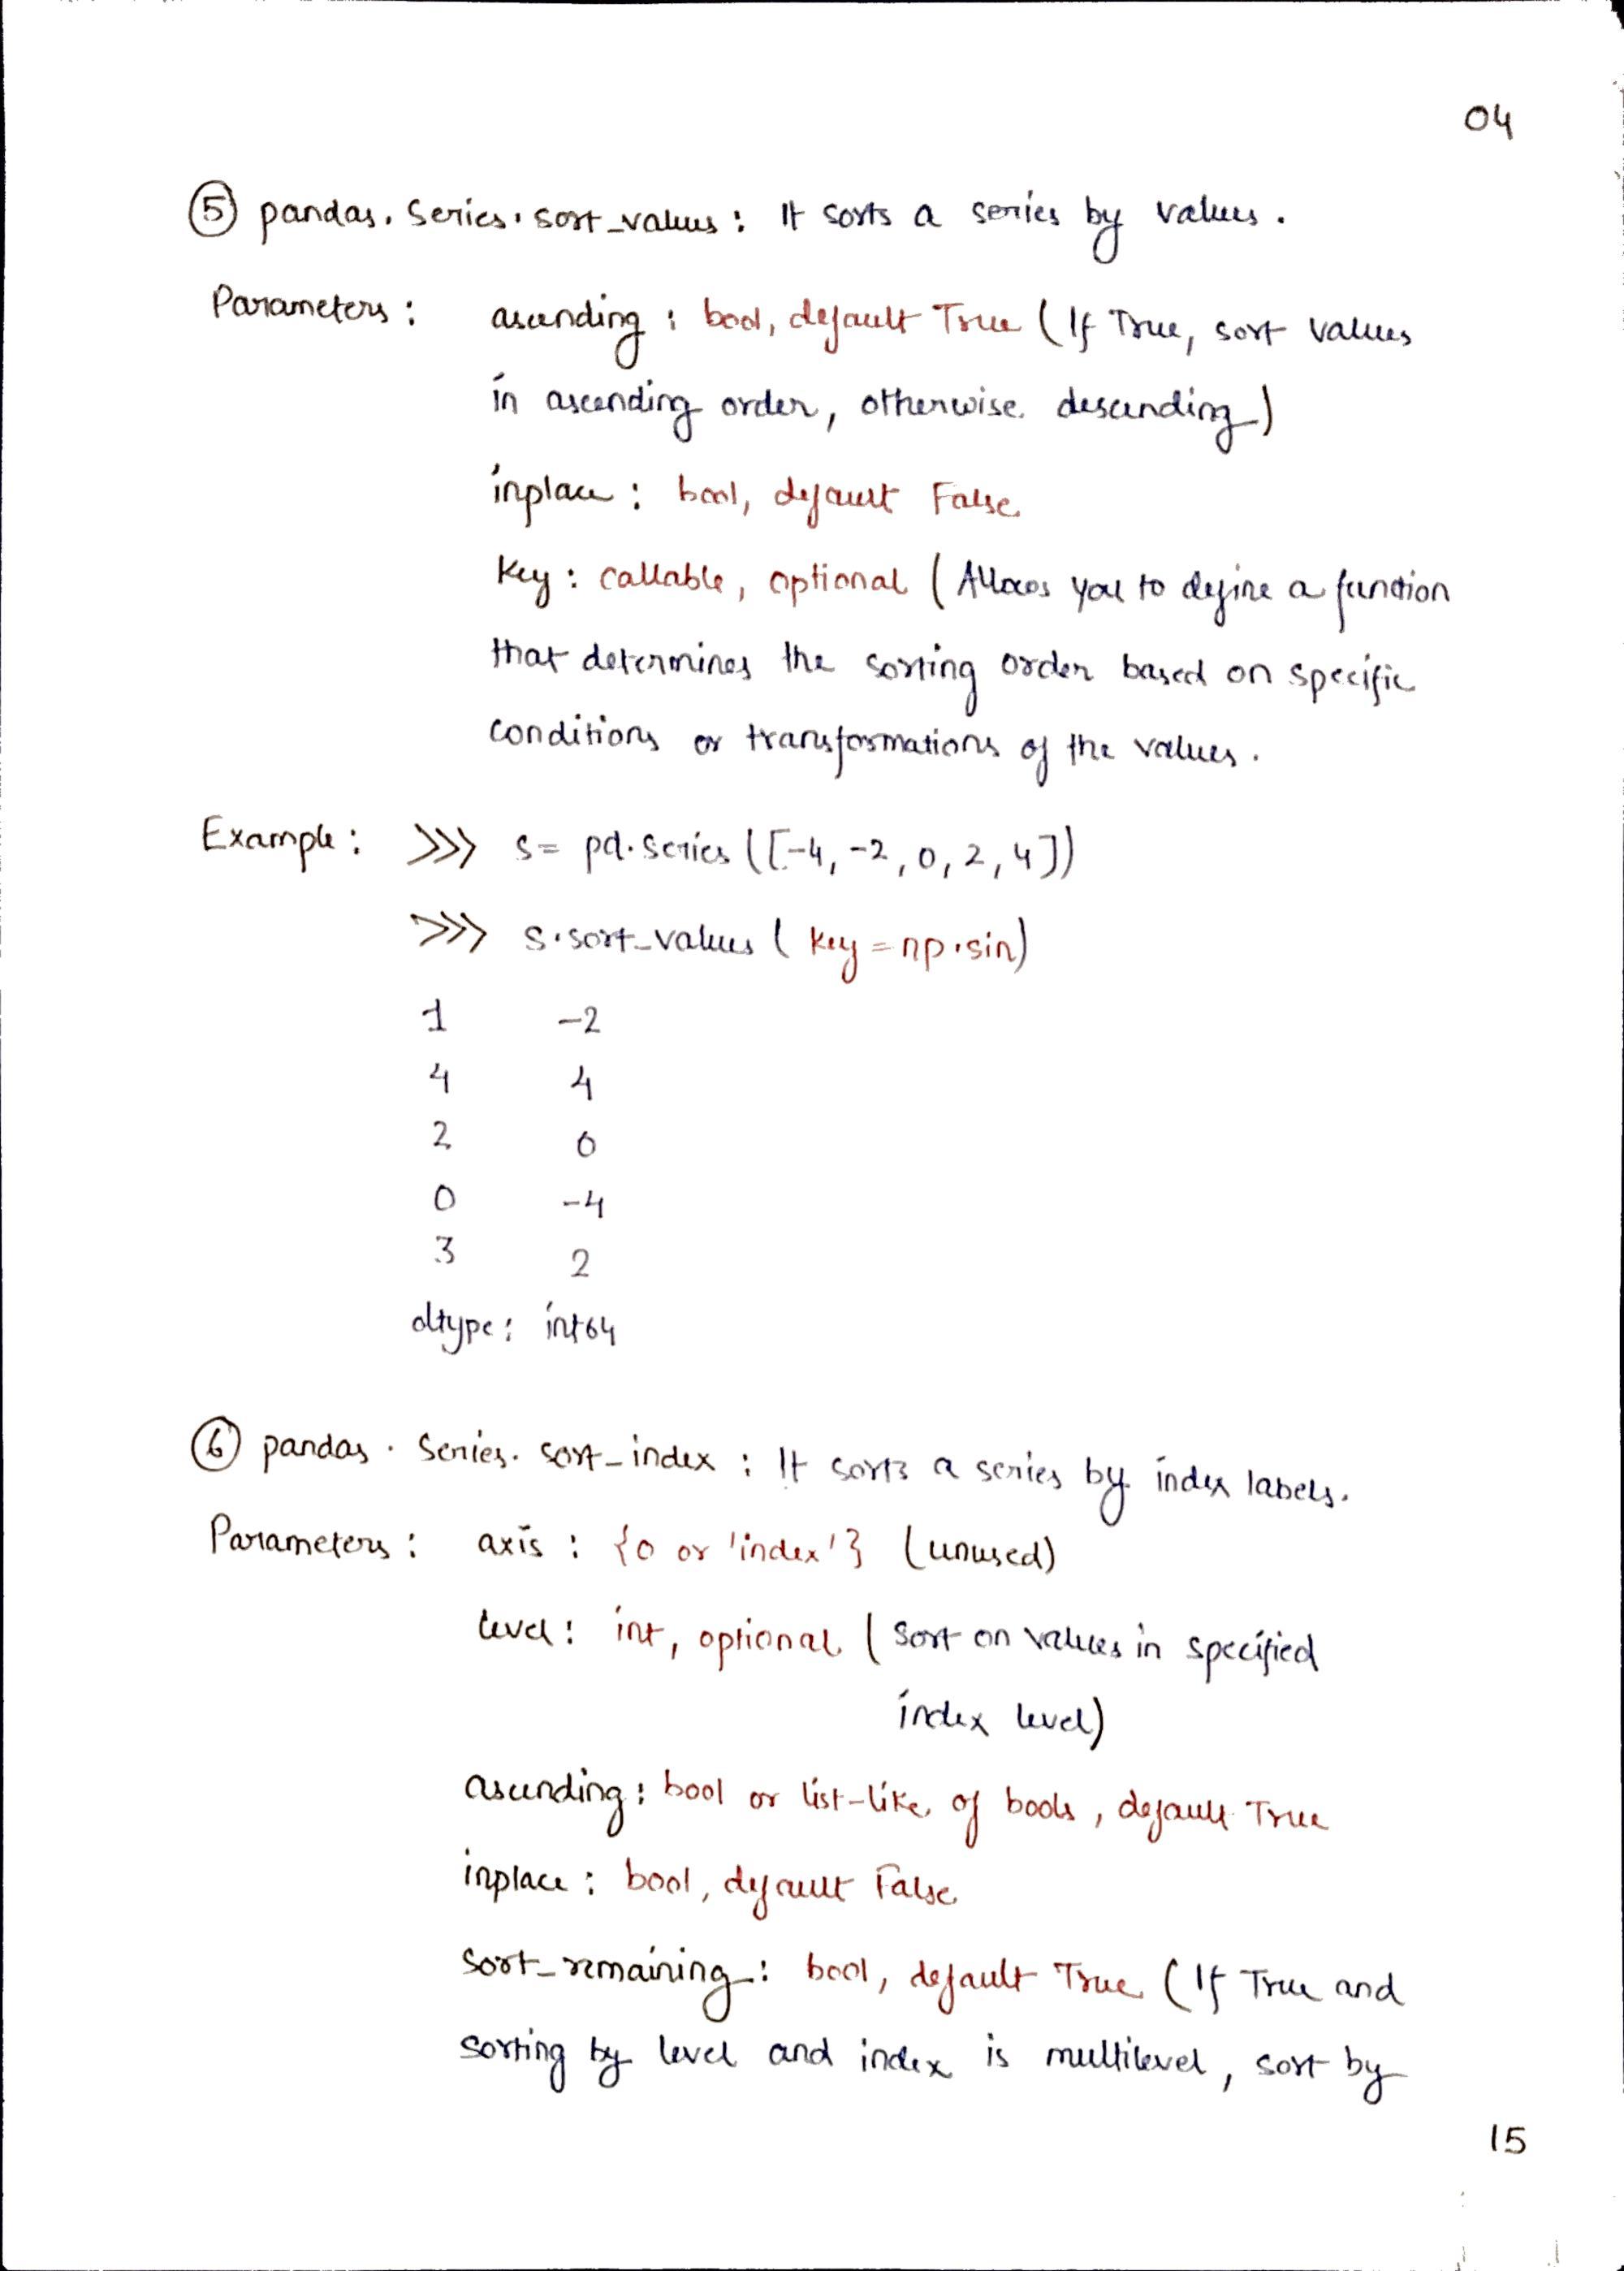 04
⑤ pandas. Series. sort_values : It sorts a series by values.
Parameters : ascending : bool, default True (If True, sort values
in ascending order, otherwise descending)
inplace : bool, default False
Key : callable, optional (Allows you to define a function
that determines the sorting order based on specific
conditions or transformations of the values.
Example : >>> s = pd.Series ([-4, -2, 0, 2, 4])
>>> s.sort_values ( key = np.sin)
1 -2
4 4
2 0
0 -4
3 2
dtype : int64
⑥ pandas. Series. sort_index : It sorts a series by index labels.
Parameters : axis : {0 or 'index'} (unused)
level : int, optional (sort on values in specified
index level)
ascending : bool or list-like of bools, default True
inplace : bool, default False
sort_remaining : bool, default True (If True and
sorting by level and index is multilevel, sort by
15